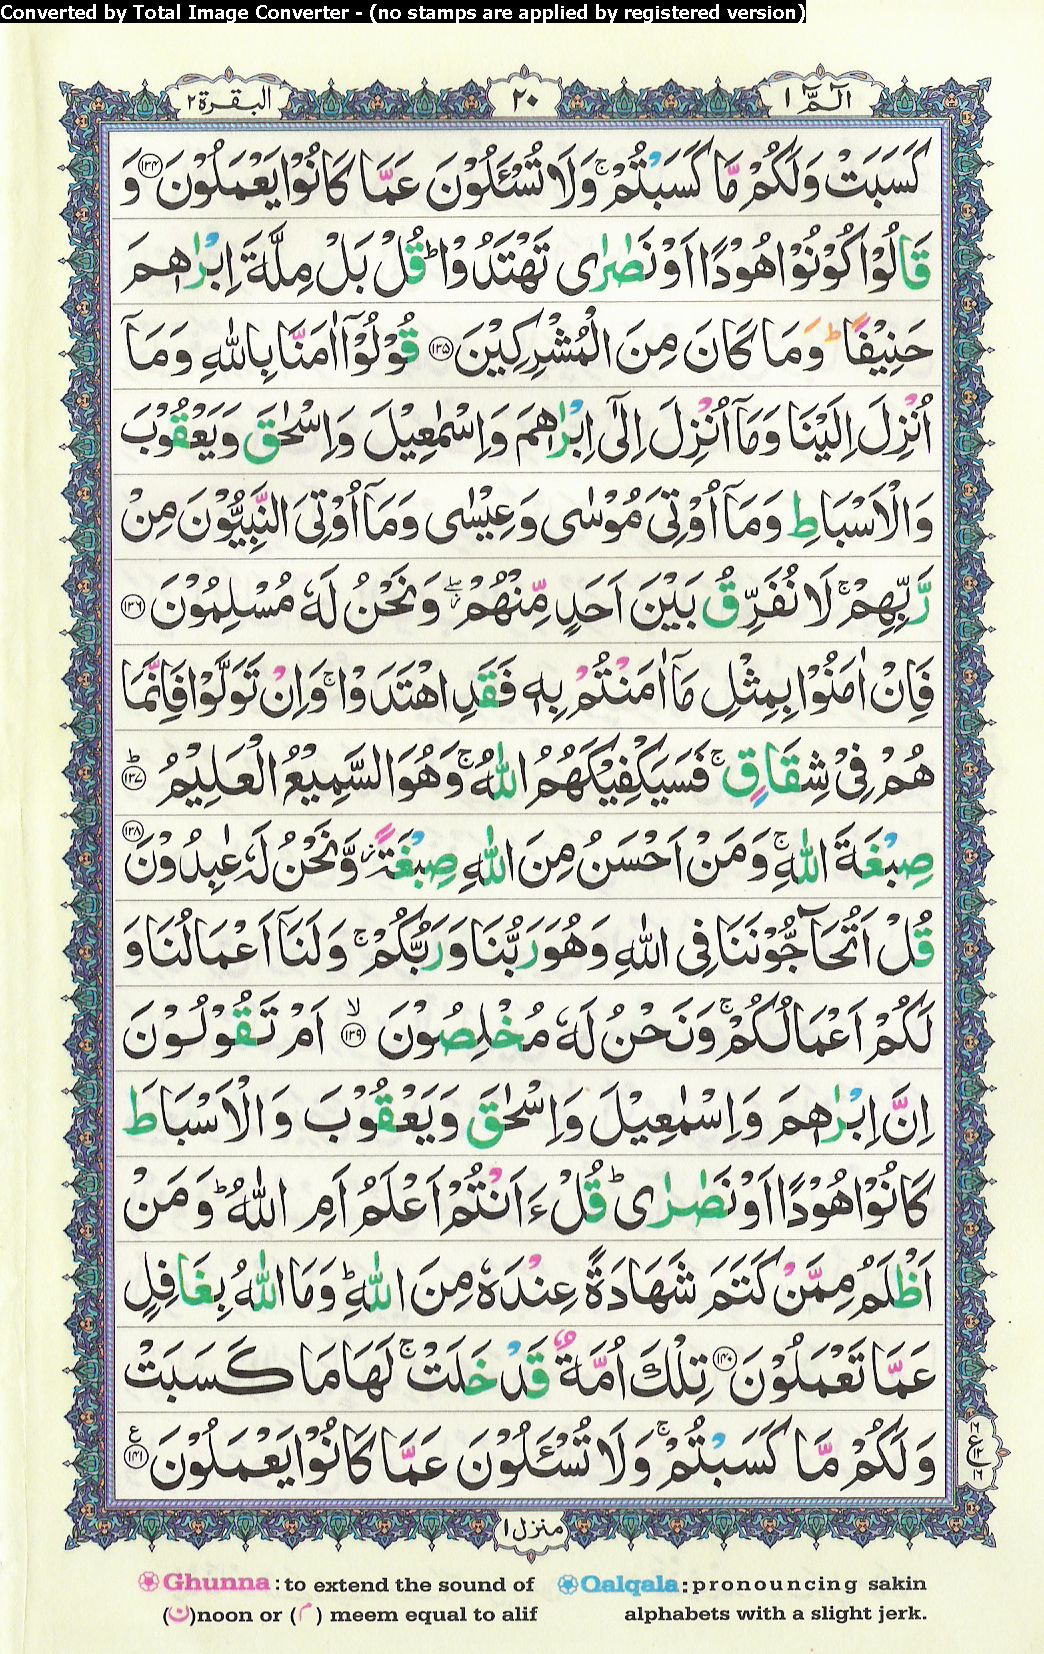 Converted by Total Image Converter - (no stamps are applied by registered version)
الٓمّٓ ۱
۲۰
البقرة ۲
كَسَبَتْ وَلَكُمْ مَّا كَسَبْتُمْ ۚ وَلَا تُسْـَٔلُوْنَ عَمَّا كَانُوْا يَعْمَلُوْنَ ۝۱۳۴ وَ
قَالُوْا كُوْنُوْا هُوْدًا اَوْ نَصٰرٰى تَهْتَدُوْا ؕ قُلْ بَلْ مِلَّةَ اِبْرٰهٖمَ
حَنِيْفًا ؕ وَمَا كَانَ مِنَ الْمُشْرِكِيْنَ ۝۱۳۵ قُوْلُوْٓا اٰمَنَّا بِاللّٰهِ وَمَآ
اُنْزِلَ اِلَيْنَا وَمَآ اُنْزِلَ اِلٰٓى اِبْرٰهٖمَ وَاِسْمٰعِيْلَ وَاِسْحٰقَ وَيَعْقُوْبَ
وَالْاَسْبَاطِ وَمَآ اُوْتِىَ مُوْسٰى وَعِيْسٰى وَمَآ اُوْتِىَ النَّبِيُّوْنَ مِنْ
رَّبِّهِمْ ۚ لَا نُفَرِّقُ بَيْنَ اَحَدٍ مِّنْهُمْ ؗ وَنَحْنُ لَهٗ مُسْلِمُوْنَ ۝۱۳۶
فَاِنْ اٰمَنُوْا بِمِثْلِ مَآ اٰمَنْتُمْ بِهٖ فَقَدِ اهْتَدَوْا ۚ وَاِنْ تَوَلَّوْا فَاِنَّمَا
هُمْ فِىْ شِقَاقٍ ۚ فَسَيَكْفِيْكَهُمُ اللّٰهُ ۚ وَهُوَ السَّمِيْعُ الْعَلِيْمُ ؕ ۝۱۳۷
صِبْغَةَ اللّٰهِ ۚ وَمَنْ اَحْسَنُ مِنَ اللّٰهِ صِبْغَةً ؗ وَّنَحْنُ لَهٗ عٰبِدُوْنَ ۝۱۳۸
قُلْ اَتُحَآجُّوْنَنَا فِى اللّٰهِ وَهُوَ رَبُّنَا وَرَبُّكُمْ ۚ وَلَنَآ اَعْمَالُنَا وَ
لَكُمْ اَعْمَالُكُمْ ۚ وَنَحْنُ لَهٗ مُخْلِصُوْنَ ۙ ۝۱۳۹ اَمْ تَقُوْلُوْنَ
اِنَّ اِبْرٰهٖمَ وَاِسْمٰعِيْلَ وَاِسْحٰقَ وَيَعْقُوْبَ وَالْاَسْبَاطَ
كَانُوْا هُوْدًا اَوْ نَصٰرٰى ؕ قُلْ ءَاَنْتُمْ اَعْلَمُ اَمِ اللّٰهُ ؕ وَمَنْ
اَظْلَمُ مِمَّنْ كَتَمَ شَهَادَةً عِنْدَهٗ مِنَ اللّٰهِ ؕ وَمَا اللّٰهُ بِغَافِلٍ
عَمَّا تَعْمَلُوْنَ ۝۱۴۰ تِلْكَ اُمَّةٌ قَدْ خَلَتْ ۚ لَهَا مَا كَسَبَتْ
وَلَكُمْ مَّا كَسَبْتُمْ ۚ وَلَا تُسْـَٔلُوْنَ عَمَّا كَانُوْا يَعْمَلُوْنَ ۝۱۴۱ ع
۱۶ ع ۱۲ ۱۶
منزل ۱
Ghunna : to extend the sound of (ن)noon or (م) meem equal to alif
Qalqala : pronouncing sakin alphabets with a slight jerk.